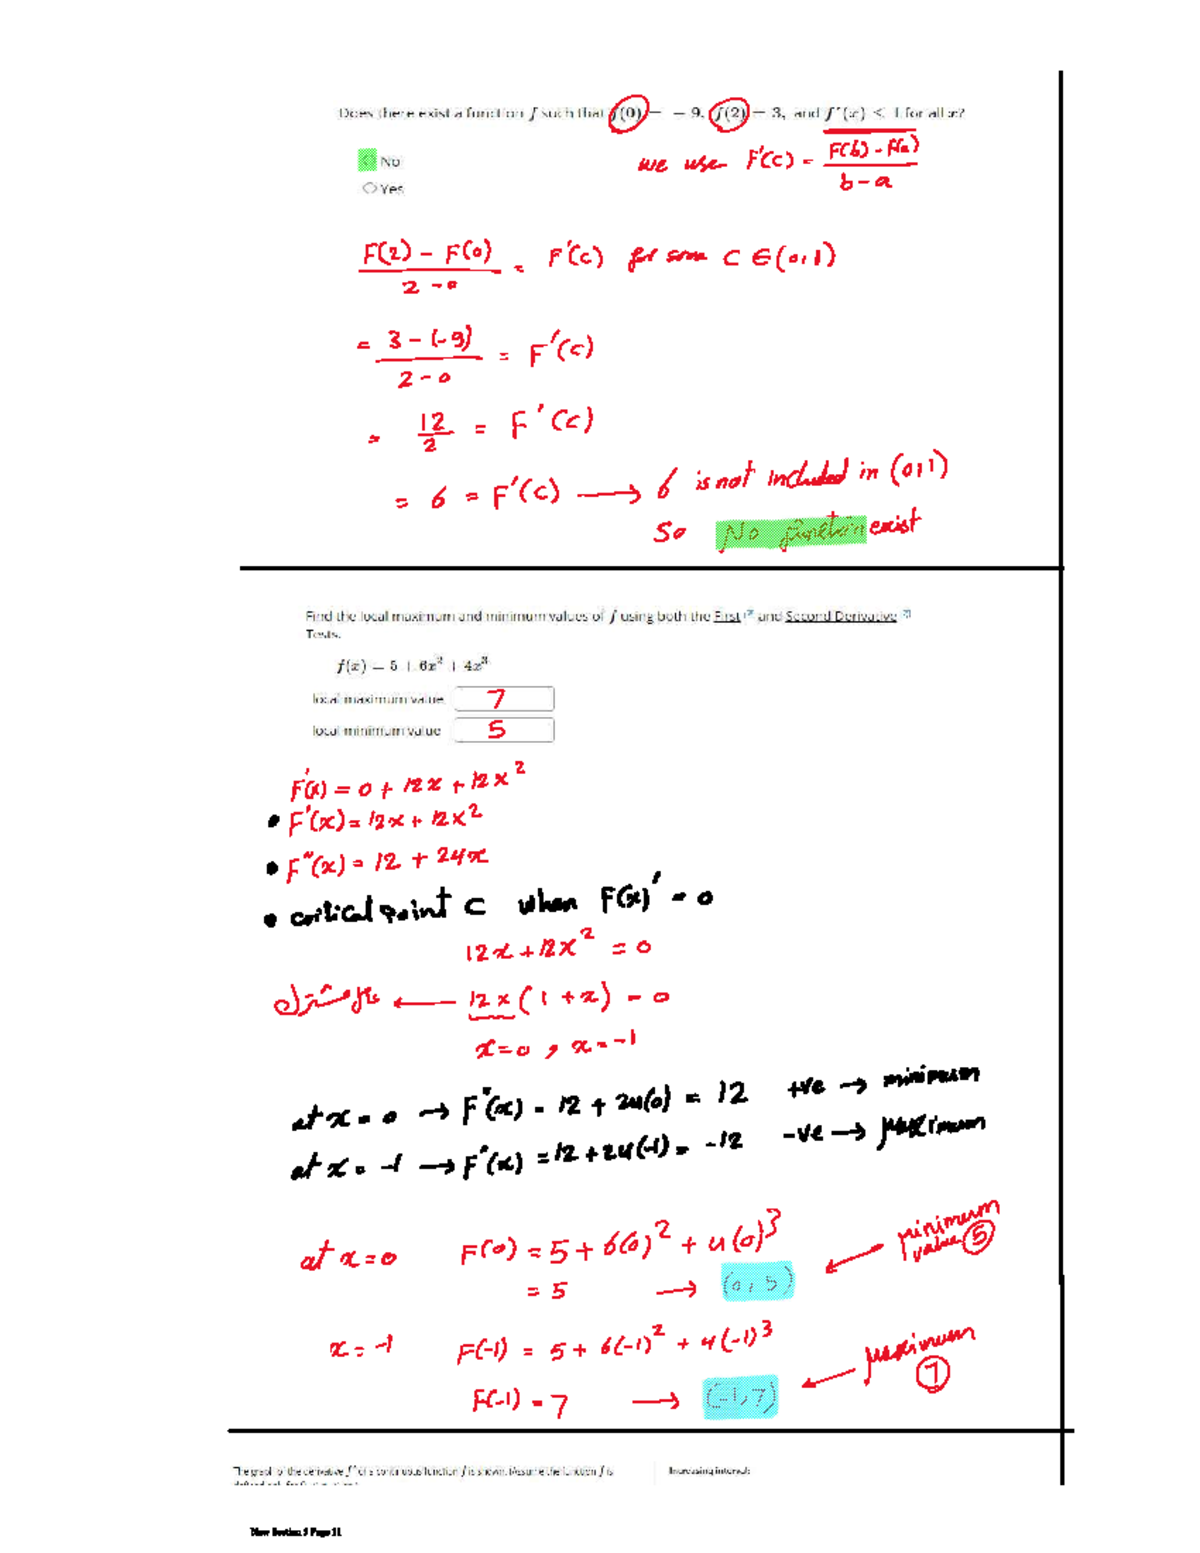 Does there exist a function f such that f(0) = −9, f(2) = 3, and f′(x) ≤ 1 for all x?
No
Yes
we use F'(c) = F(b) - F(a) / b - a
F(2) - F(0) / 2 - 0 = F'(c) for some C ∈ (0,1)
= 3 - (-9) / 2 - 0 = F'(c)
= 12/2 = F'(c)
= 6 = F'(c) ⟶ 6 is not included in (0,1)
So No function exist
Find the local maximum and minimum values of f using both the First and Second Derivative
Tests.
f(x) = 5 + 6x² + 4x³
local maximum value 7
local minimum value 5
F'(x) = 0 + 12x + 12x²
• F'(x) = 12x + 12x²
• F"(x) = 12 + 24x
• critical point C when F(x)' = 0
12x + 12x² = 0
عامل مشترك ← 12x (1 + x) = 0
x = 0 , x = -1
at x = 0 → F"(x) = 12 + 24(0) = 12 +ve → minimum
at x = -1 → F"(x) = 12 + 24(-1) = -12 -ve → Maximum
at x = 0 F(0) = 5 + 6(0)² + 4(0)³
= 5 → (0, 5) ← minimum value 5
x = -1 F(-1) = 5 + 6(-1)² + 4(-1)³
F(-1) = 7 → (-1, 7) ← Maximum 7
The graph of the derivative f′ of a continuous function f is shown. (Assume the function f is
Increasing interval:
New Section 5 Page 11